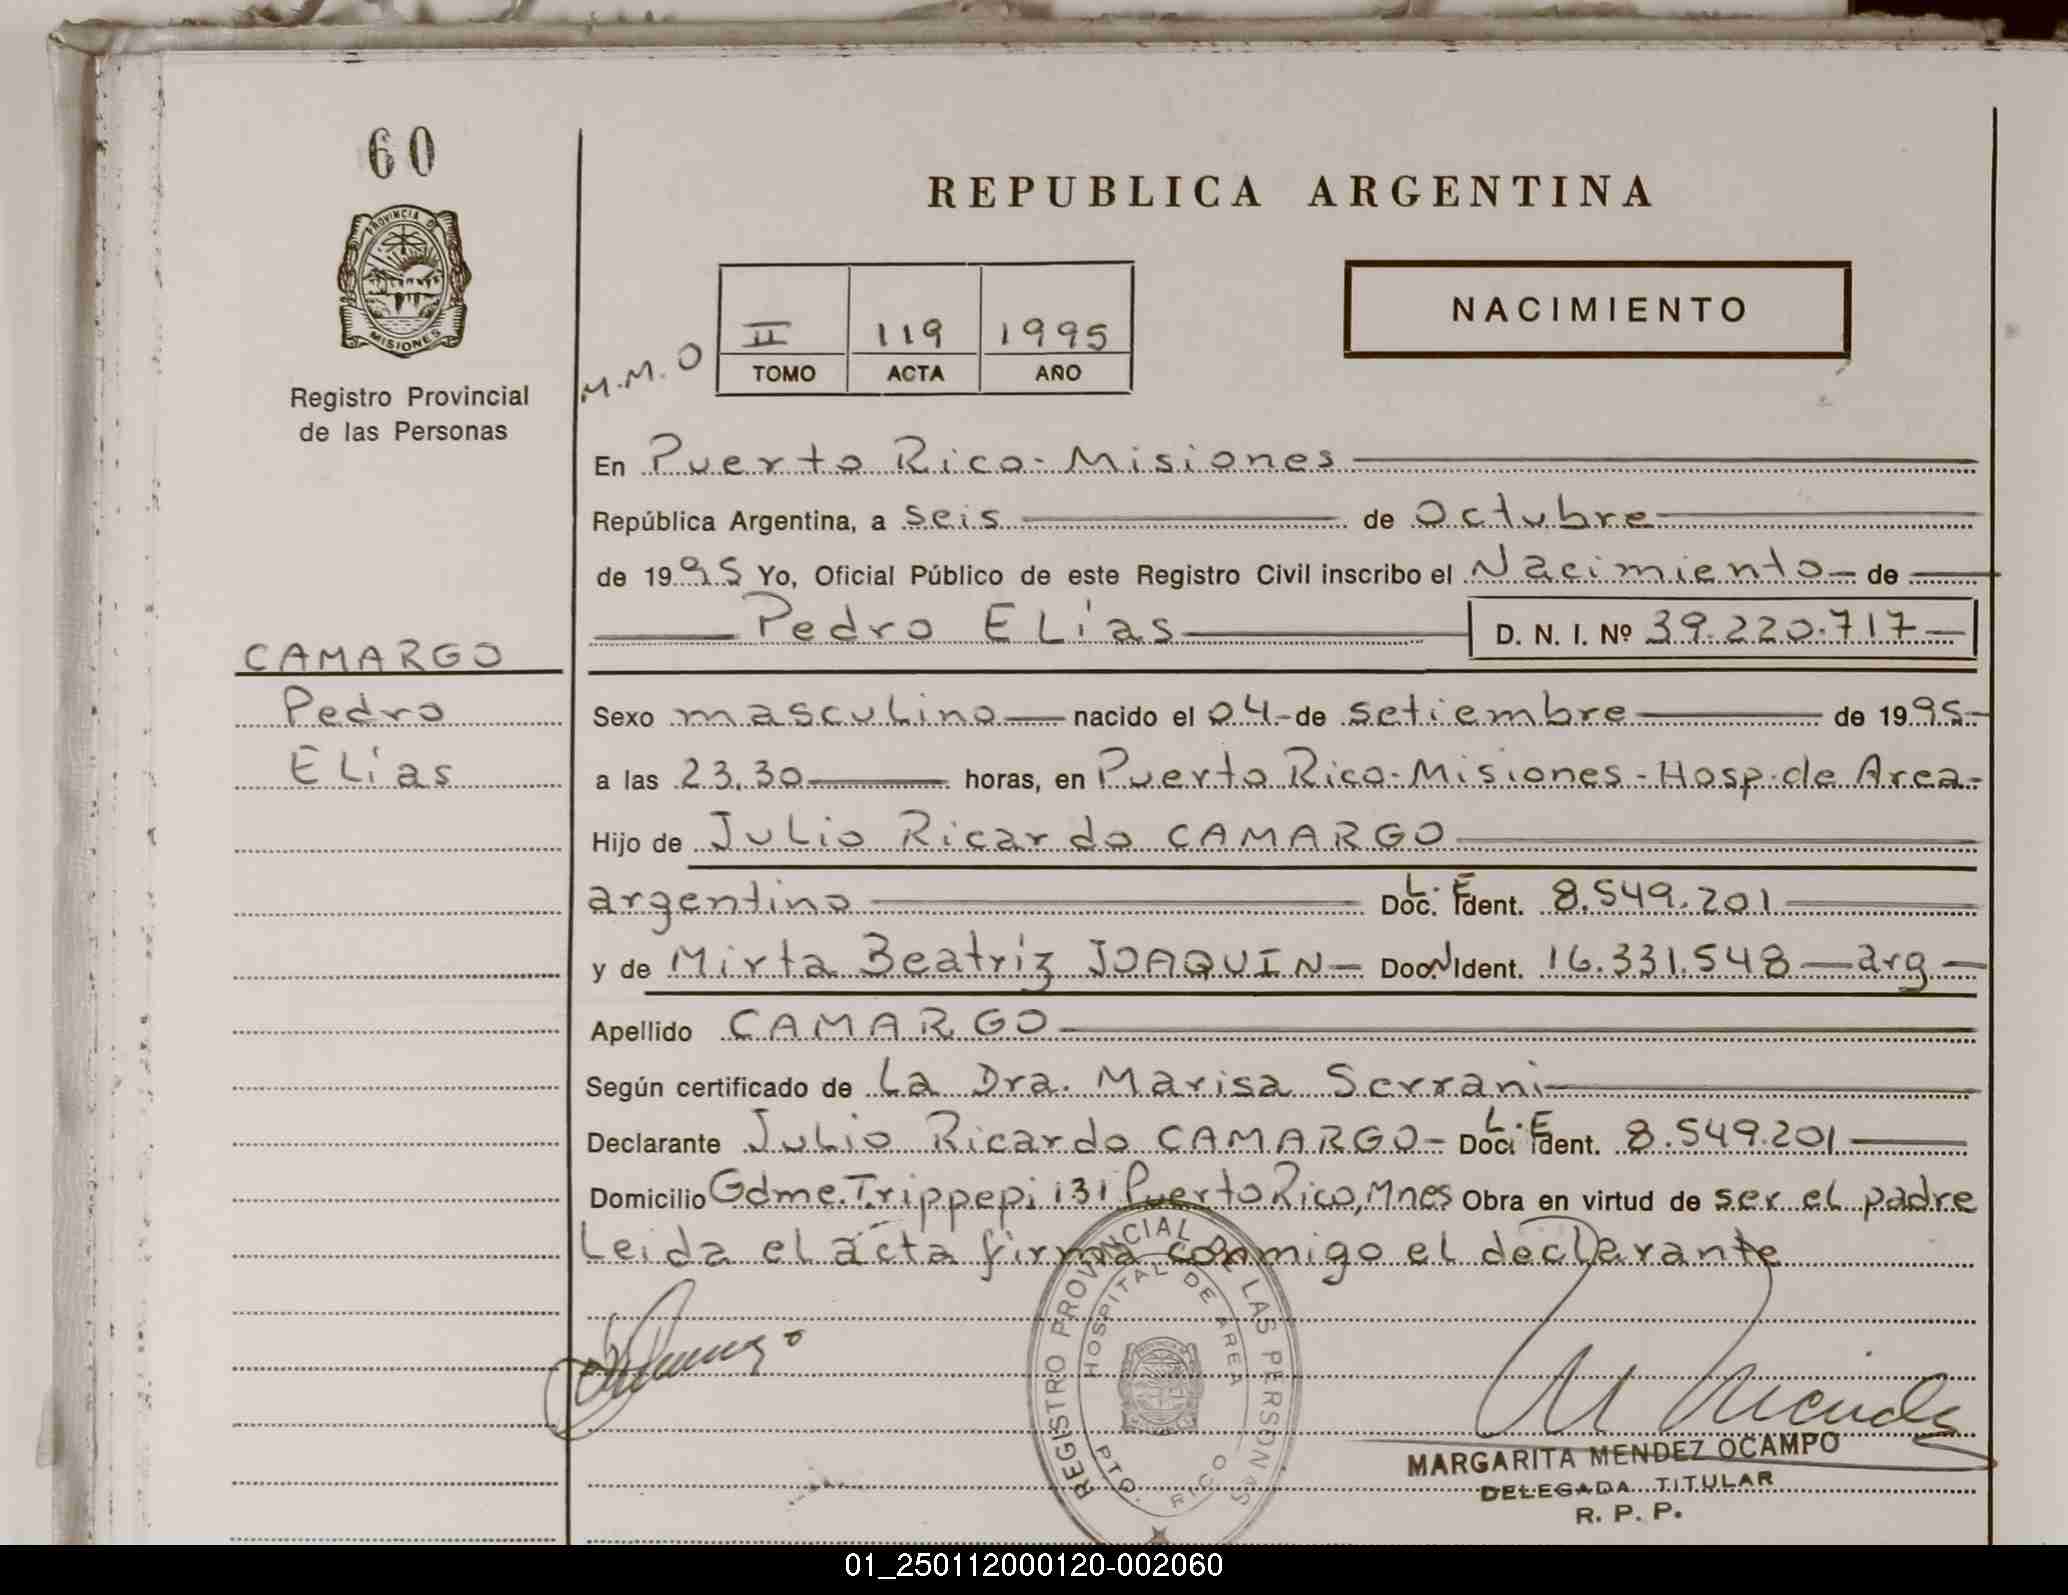 60
PROVINCIA DE
MISIONES
Registro Provincial
de las Personas
REPUBLICA ARGENTINA
NACIMIENTO
M.M.O
II 119 1995
TOMO ACTA AÑO
En Puerto Rico - Misiones
República Argentina, a seis de Octubre
de 1995 Yo, Oficial Público de este Registro Civil inscribo el Nacimiento de
Pedro Elías D. N. I. Nº 39.220.717
CAMARGO
Pedro
Elías
Sexo masculino nacido el 04 de setiembre de 1995
a las 23.30 horas, en Puerto Rico - Misiones - Hosp. de Area -
Hijo de Julio Ricardo CAMARGO
argentino L. E Doc. Ident. 8.549.201
y de Mirta Beatriz JOAQUIN Doc. N Ident. 16.331.548 arg
Apellido CAMARGO
Según certificado de la Dra. Marisa Serrani
Declarante Julio Ricardo CAMARGO L. E Doc. Ident. 8.549.201
Domicilio Gdme. Trippepi 131 Puerto Rico, Mnes Obra en virtud de ser el padre
Leida el acta firma conmigo el declarante
REGISTRO PROVINCIAL DE LAS PERSONAS
HOSPITAL DE AREA
PTO. RICO
MARGARITA MENDEZ OCAMPO
DELEGADA TITULAR
R. P. P.
01_250112000120-002060